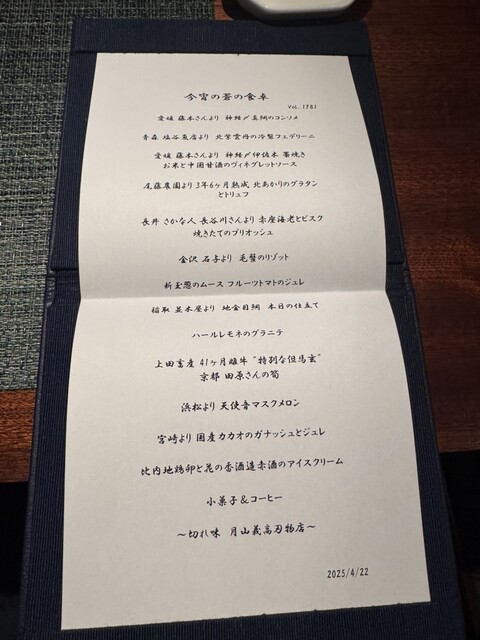 今宵の蒼の食卓
Vol. 1781
愛媛 藤本さんより 神経〆真鯛のコンソメ
青森 塩谷魚店より 北紫雲丹の冷製フェデリーニ
愛媛 藤本さんより 神経〆伊佐木 藁焼き
お米と中国甘酒のヴィネグレットソース
尾藤農園より 3年6ヶ月熟成 北あかりのグラタン
とトリュフ
長井 さかな人 長谷川さんより 赤座海老とビスク
焼きたてのブリオッシュ
金沢 石与より 毛蟹のリゾット
新玉葱のムース フルーツトマトのジュレ
稲取 並木屋より 地金目鯛 本日の仕立て
ハールレモネのグラニテ
上田畜産 41ヶ月雌牛 "特別な但馬玄"
京都 田原さんの筍
浜松より 天使音マスクメロン
宮崎より 国産カカオのガナッシュとジュレ
比内地鶏卵と花の香酒造赤酒のアイスクリーム
小菓子＆コーヒー
～切れ味 月山義高刃物店～
2025/4/22